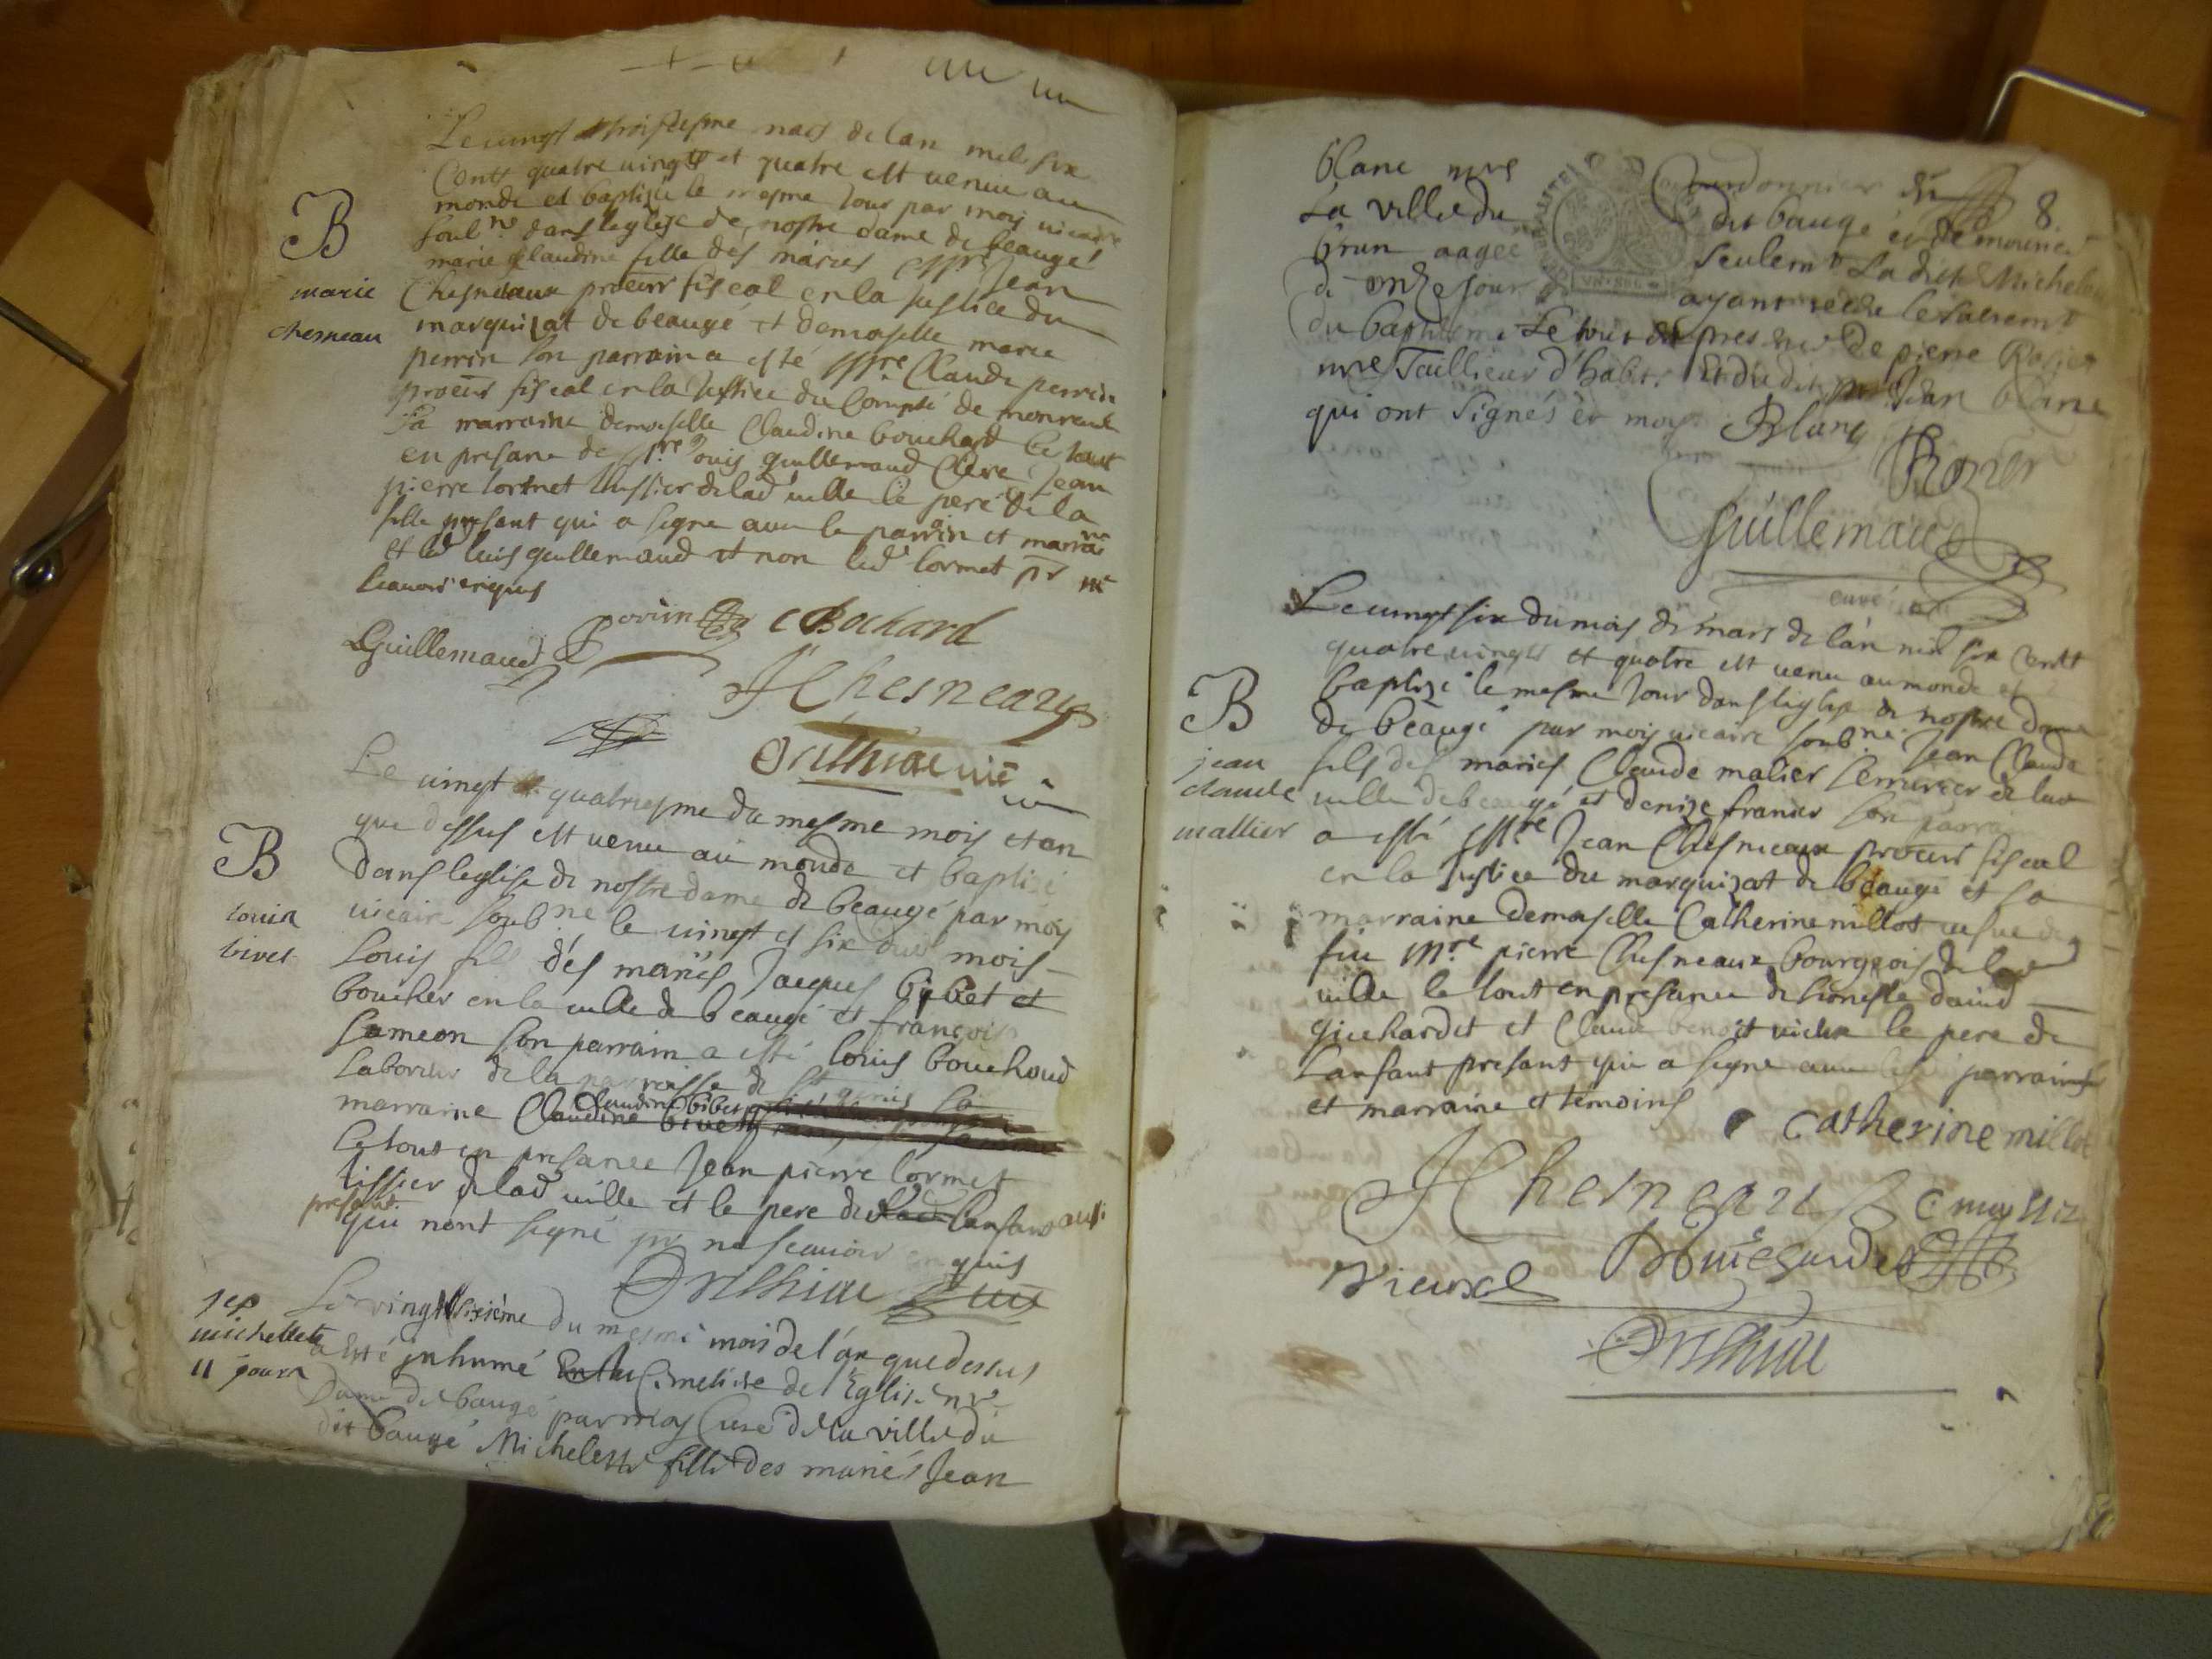 Le vingt troisiesme mars de lan mil six
Cents quatre vingts et quatre est venue au
monde et baptizée le mesme Jour par moy vicaire
soubne dans leglise de nostre dame de beaugé
marie claudine fille des mariés Jean
Chesneaux procur fiscal en la Justice du
marquizat de beaugé et demoiselle marie
perrin son parrain a esté Mre Claude perrin
procur fiscal en la Justice du Compté de monreal
Sa marraine demoiselle Claudine bouchard le tout
en presance de Louis guillemaud Clerc Jean
pierre lormet tissier de lad ville le pere de la
fille presant qui a signe avec le parrin et marrai
et led Louis guillemaud et non led lormet pr ne
scavoir enquis
B
marie
chesneau
LGuillemaud Perrin CBochard
JChesneaux
vic
Le vingt quatriesme du mesme mois et an
que dessus est venu au monde et baptizé
dans leglise de nostre dame de beaugé par moy
vicaire soubne le vingt et six dud mois
Louis fils dés mariés Jacques bibet et
boucher en la ville de beaugé et françoise
Sameon son parrain a esté louis bouchoud
Laboreur de la parroisse de St genis Sa
marraine Claudine bibet
Claudine bivet
Le tout en presance Jean pierre lormet
tissier de lad ville et le pere de Lanfant aussi
presant
qui nont signé pr ne scavoir enquis
B
louis
bivet
Le vingt sixième du mesme mois de l'an que dessus
a esté inhumé Cimetiere de l'Eglise nre
Dame de baugé par moy Curé de la ville du
dit baugé Michelette fille des mariés Jean
sep
michellette
11 jours
8
blanc mre Courdonnier de
La ville du dit baugé et de
brun aagée seulemt La dite Michelette
de onze jours ayant receu le sacremt
du baptisme Le tout en presence de pierre Rosier
mre Taillieur d'habits Et du dit Jean blanc
qui ont signés et moy Blanc
Rozier
Guillemaud
curé
Le vingt six du mois de mars de lan mil six Cents
quatre vingts et quatre est venu au monde et
baptizé le mesme Jour dans leglise de nostre dame
de beaugé par moy vicaire soubne Jean Claude
fils des mariés Claude malier serrurier de lad
ville de beaugé et denize franier son parrain
a esté Mre Jean Chesneaux procur fiscal
en la Justice du marquizat de beaugé et sa
marraine demoiselle Catherine millot vefve de
feu Mre pierre Chesneaux bourgeois de lad
ville le tout en presance de honeste david
guichardet et Claude benoit vieux le pere de
Lanfant presant qui a signe avec les parrains
et marraine et témoins
B
jean
claude
mallier
catherine millot
JChesneaux
Vieux